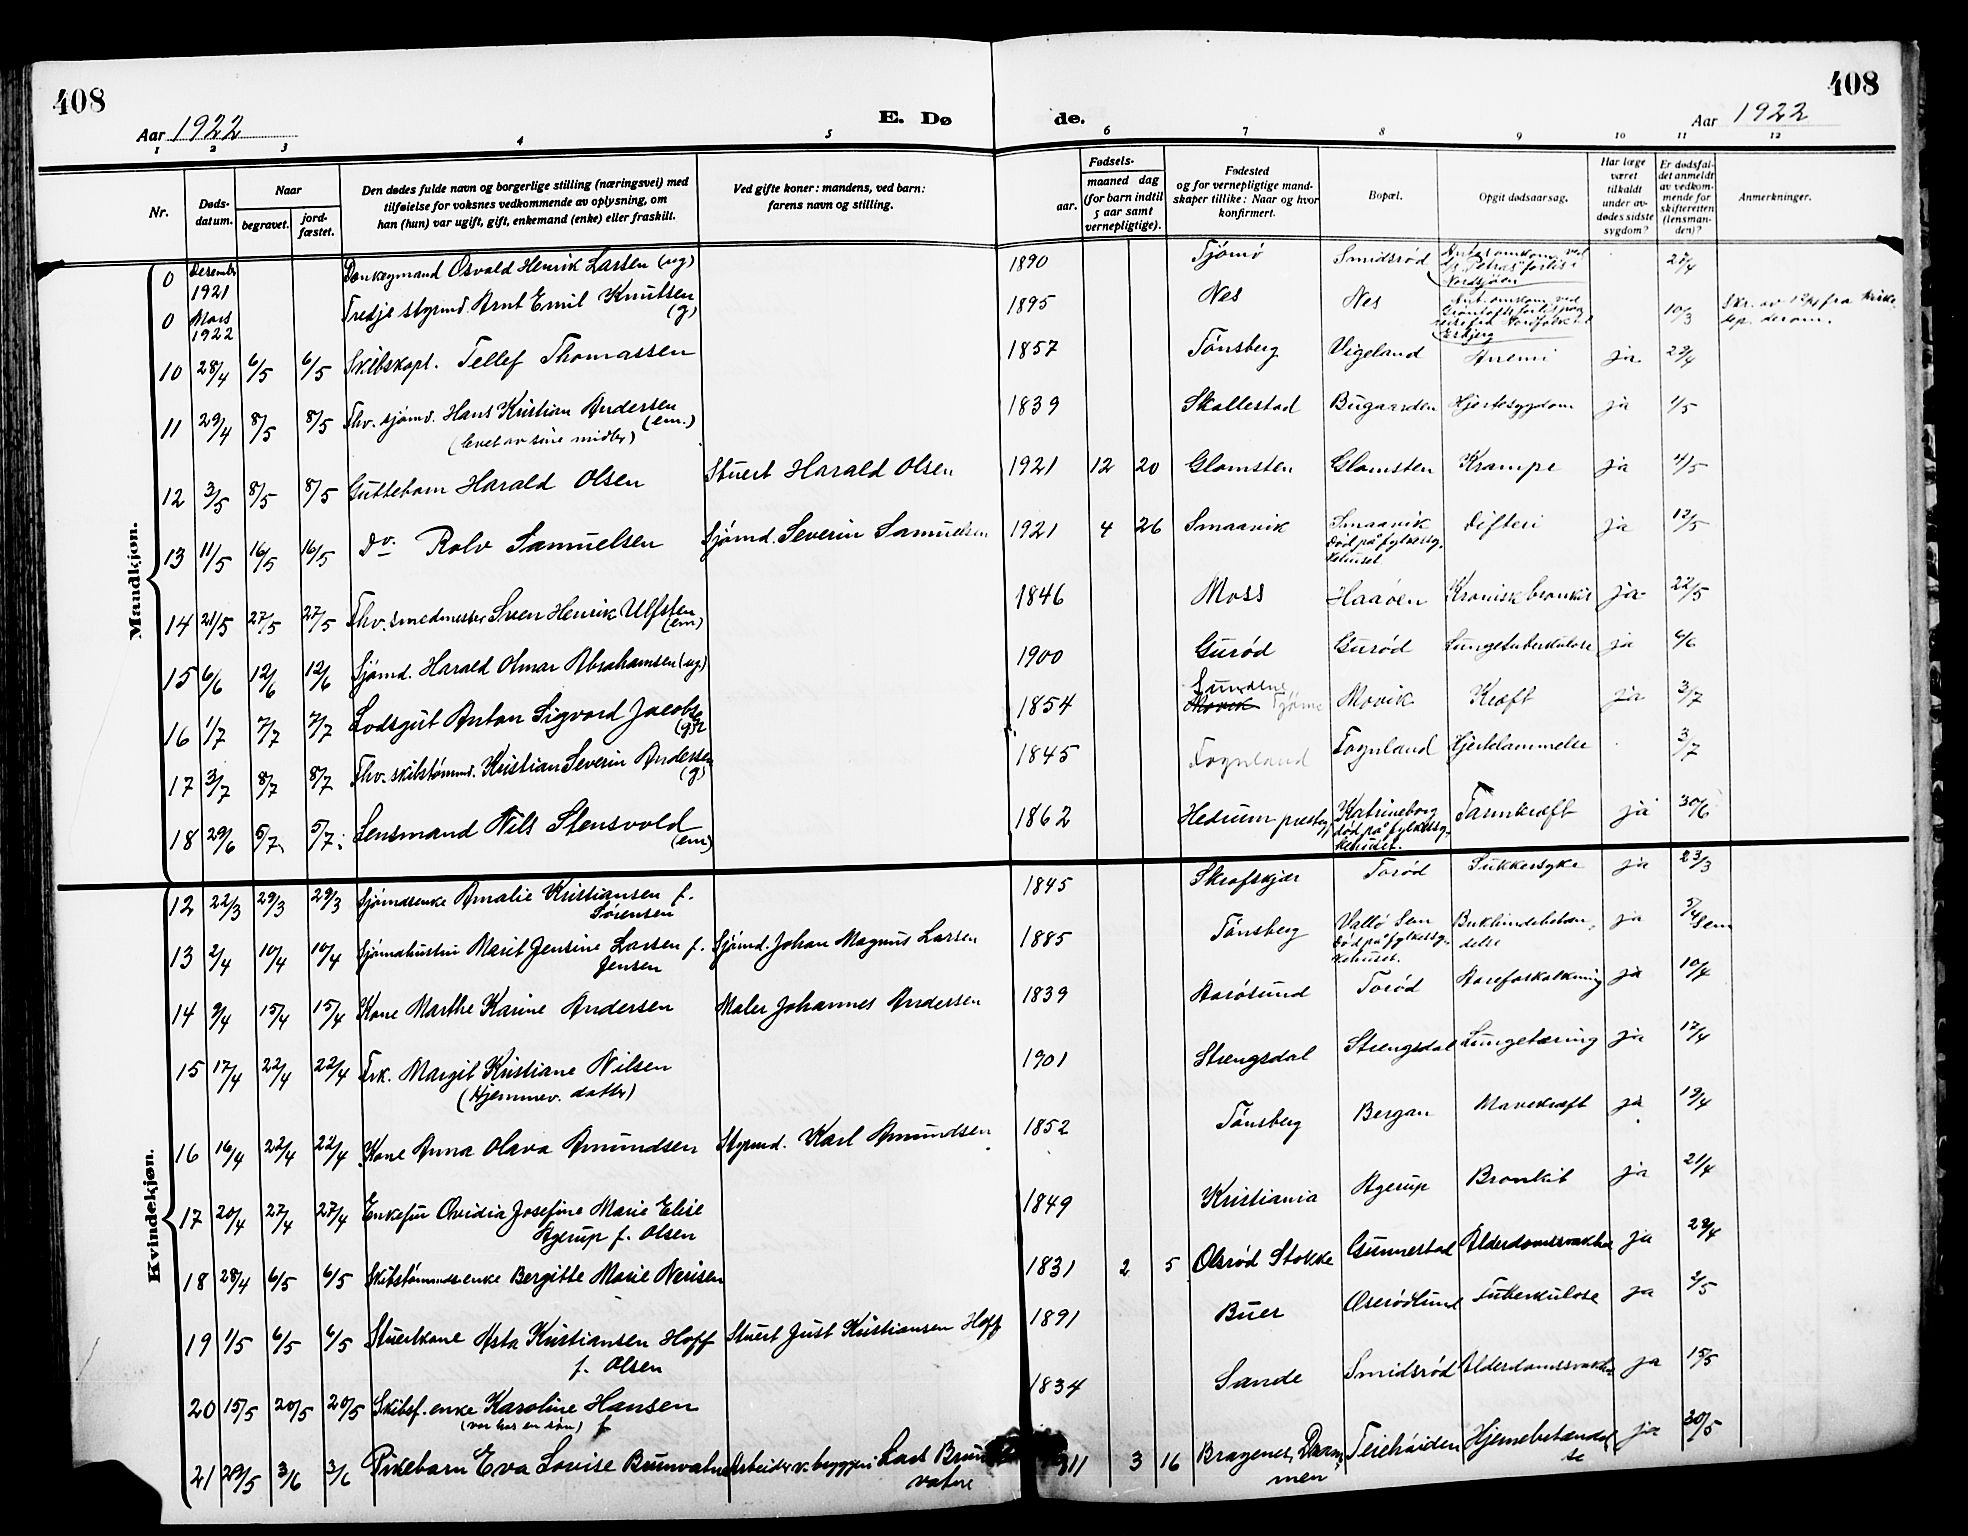 408
408
Aar 1922
E. Dø de.
Aar 1922
1 2 3 4 5 6 7 8 9 10 11 12
Nr.
Døds-
datum.
Naar
begravet.
jord-
fæstet.
Den dødes fulde navn og borgerlige stilling (næringsvei) med
tilføielse for voksnes vedkommende av oplysning, om
han (hun) var ugift, gift, enkemand (enke) eller fraskilt.
Ved gifte koner: mandens, ved barn:
farens navn og stilling.
Fødsels-
aar.
maaned dag
(for barn indtil
5 aar samt
vernepligtige).
Fødested
og for vernepligtige mand-
skaper tillike: Naar og hvor
konfirmert.
Bopæl.
Opgit dødsaarsag.
Har læge
været
tilkaldt
under av-
dødes sidste
sygdom?
Er dødsfal-
det anmeldt
av vedkom-
mende for
skifteretten
(lensman-
den)?
Anmerkninger.
Mandkjøn.
0 Desember 1921 Donkeymand Osvald Henrik Larsen (ug) 1890 Tjømø Smidsrød Antas omkom. ved d/s "Petras" forlis i Nordsjøen 27/4
0 Mars 1922 Tredje styrmd. Arnt Emil Knutsen (g) 1895 Nes Nes Ant. omkom ved forlis paa reise fra Norfolk til Esbjerg 10/3 Skr. av fra Kirkedep. derom.
10 28/4 6/5 6/5 Skibskapt. Tellef Thomassen 1857 Tønsberg Vigeland Anemi ja 29/4
11 29/4 8/5 8/5 Fhv. sjømd. Hans Kristian Andersen (em.) 1839 Skallestad Bugaarden Hjertesygdom ja 1/5
(levet av sine midler)
12 3/5 8/5 8/5 Guttebarn Harald Olsen Stuert Harald Olsen 1921 12 20 Glomsten Glomsten Krampe ja 4/5
13 11/5 16/5 16/5 Do Rolv Samuelsen Sjømd. Severin Samuelsen 1921 4 26 Smaavik Smaavik død på fylkessykehuset Difteri ja 12/5
14 21/5 27/5 27/5 Fhv. smedmester Sven Henrik Ulfsten (em) 1846 Moss Haaøen Kronisk bronkit ja 22/5
15 6/6 12/6 12/6 Sjømd. Harald Olmar Abrahamsen (ug) 1900 Gurød Gurød Lungetuberkulose ja 6/6
16 1/7 7/7 7/7 Lodsgut Anton Sigvard Jacobsen (g) 1854 Sundene Movik Tjøme Movik Kræft ja 3/7
17 3/7 8/7 8/7 Fhv. skibstømmd. Kristian Severin Andersen (g) 1845 Fognland Fognland Hjertelammelse 3/7
18 29/6 5/7 5/7 Lensmand Nils Stensvold (em) 1862 Hedrum prestegj. Katrineborg død på fylkessykehuset. Tarmkræft ja 30/6
Kvindekjøn.
12 22/3 29/3 29/3 Sjømdsenke Amalie Kristiansen f. Sørensen 1845 Skrofskjær Torød Sukkersyke ja 23/3
13 2/4 10/4 10/4 Sjømdhustru Marit Jensine Larsen f. Jensen Sjømd. Johan Magnus Larsen 1885 Tønsberg Vallø Sem død på fylkessykehuset. Bukhindebetændelse ja 5/4 Sem
14 9/4 15/4 15/4 Kone Marthe Karine Andersen Maler Johannes Andersen 1839 Aarøsund Torød Aareforkalkning ja 10/4
15 17/4 22/4 22/4 Frk. Margit Kristiane Nilsen 1901 Strengsdal Strengsdal Lungetæring ja 17/4
(Hjemmev. datter)
16 16/4 22/4 22/4 Kone Anna Olava Amundsen Styrmd. Karl Amundsen 1852 Tønsberg Bergan Mavekræft ja 19/4
17 20/4 27/4 27/4 Enkefru Ovidia Josefine Marie Elise Agerup f. Olsen 1849 Kristiania Agerup Bronkit ja 21/4
18 28/4 6/5 6/5 Skibstømmdsenke Bergitte Marie Nerisen 1831 2 5 Olsrød Stokke Gunnestad Alderdomssvakhet ja 29/4
19 1/5 6/5 6/5 Stuertkone Asta Kristiansen Hoff f. Olsen Stuert Just Kristiansen Hoff 1891 Buer Oserødlund Tuberkulose ja 2/5
20 15/5 20/5 20/5 Skibsf. enke Karoline Hansen f 1834 Sande Smidsrød Alderdomssvakhet ja 15/5
(var hos en søn)
21 29/5 3/6 3/6 Pikebarn Eva Lovise Brunvatne Arbeider v. bryggeri Lars Brunvatne 11 3 16 Bragenes, Drammen Teiehøiden Hjernebetændelse ja 30/5